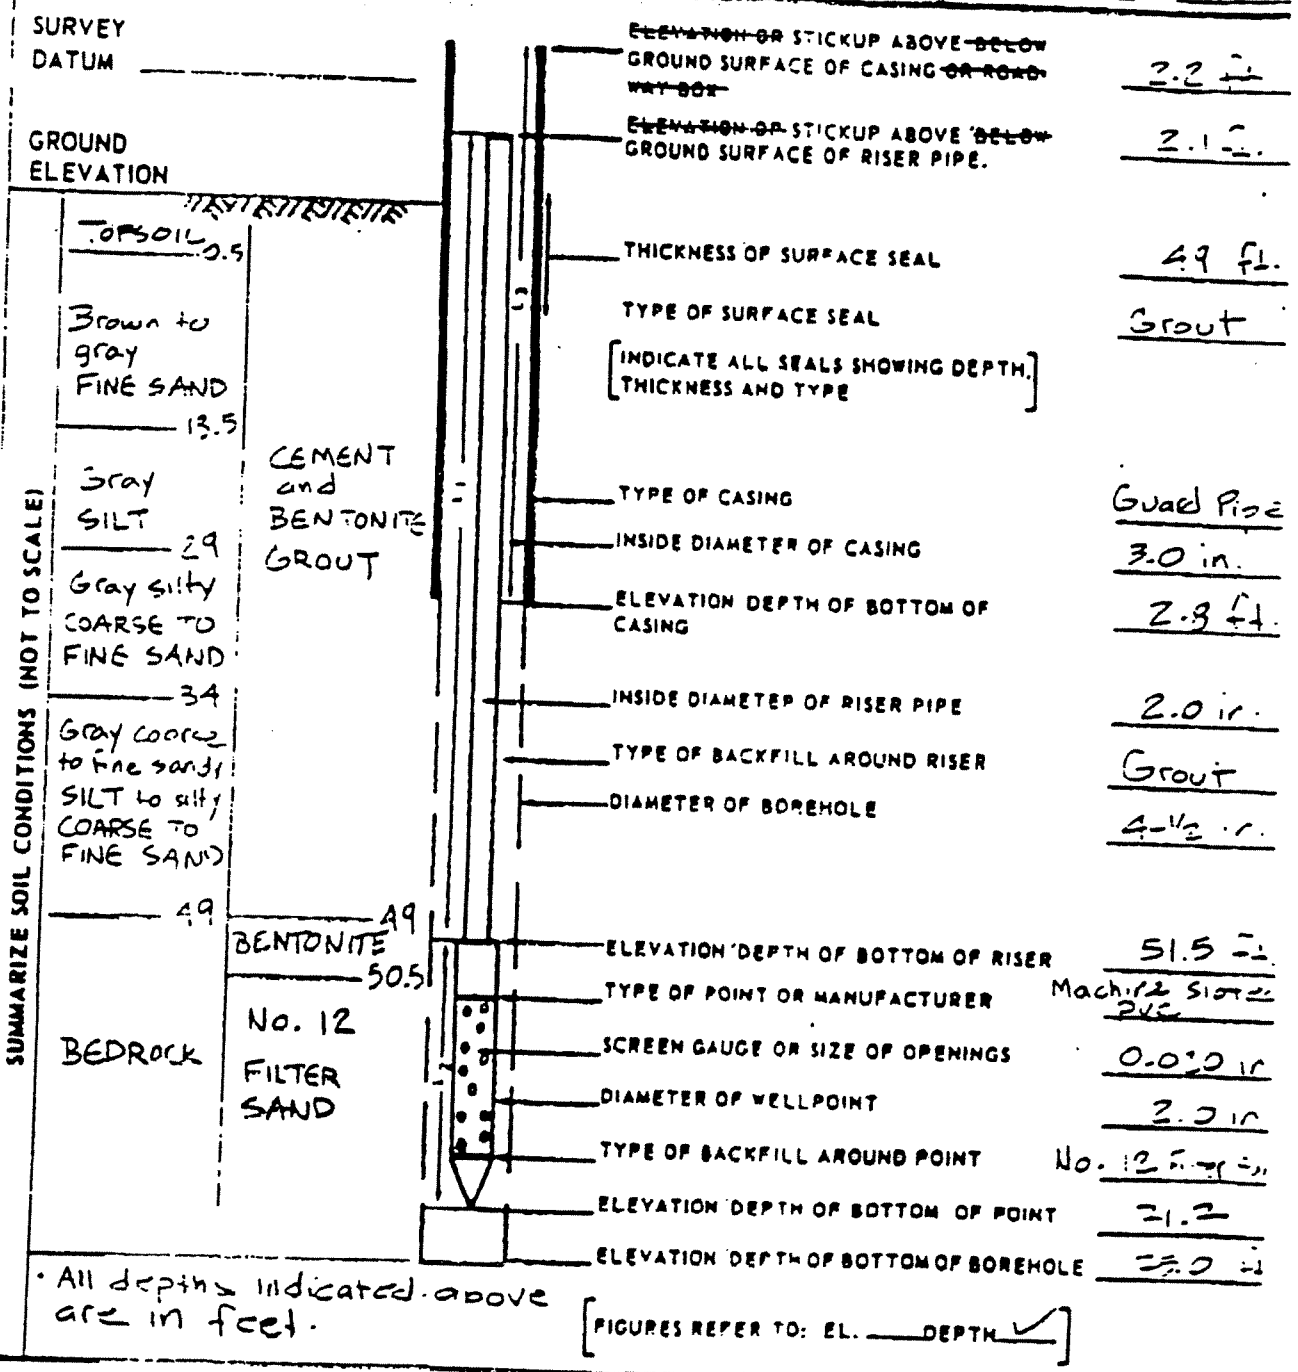 SURVEY
DATUM
GROUND
ELEVATION
SUMMARIZE SOIL CONDITIONS (NOT TO SCALE)
TOPSOIL 0.5
Brown to
gray
FINE SAND
13.5
Gray
SILT
29
Gray silty
COARSE TO
FINE SAND
34
Gray coarse
to fine sandy
SILT to silty
COARSE TO
FINE SAND
49
BEDROCK
CEMENT
and
BENTONITE
GROUT
49
BENTONITE
50.5
No. 12
FILTER
SAND
L3
L1
L2
ELEVATION OR STICKUP ABOVE BELOW
GROUND SURFACE OF CASING OR ROAD-
WAY BOX
2.2 ft.
ELEVATION OR STICKUP ABOVE BELOW
GROUND SURFACE OF RISER PIPE.
2.1 ft.
THICKNESS OF SURFACE SEAL
49 ft.
TYPE OF SURFACE SEAL
Grout
[INDICATE ALL SEALS SHOWING DEPTH.
THICKNESS AND TYPE]
TYPE OF CASING
Guard Pipe
INSIDE DIAMETER OF CASING
3.0 in.
ELEVATION DEPTH OF BOTTOM OF
CASING
2.8 ft.
INSIDE DIAMETER OF RISER PIPE
2.0 in.
TYPE OF BACKFILL AROUND RISER
Grout
DIAMETER OF BOREHOLE
4-1/2 in.
ELEVATION DEPTH OF BOTTOM OF RISER
51.5 ft.
TYPE OF POINT OR MANUFACTURER
Machine Slotted
PVC
SCREEN GAUGE OR SIZE OF OPENINGS
in
DIAMETER OF WELLPOINT
2.0 in
TYPE OF BACKFILL AROUND POINT
No. 12
ELEVATION DEPTH OF BOTTOM OF POINT
ELEVATION DEPTH OF BOTTOM OF BOREHOLE
ft
· All depths indicated above
are in feet.
[FIGURES REFER TO: EL. DEPTH ✓]